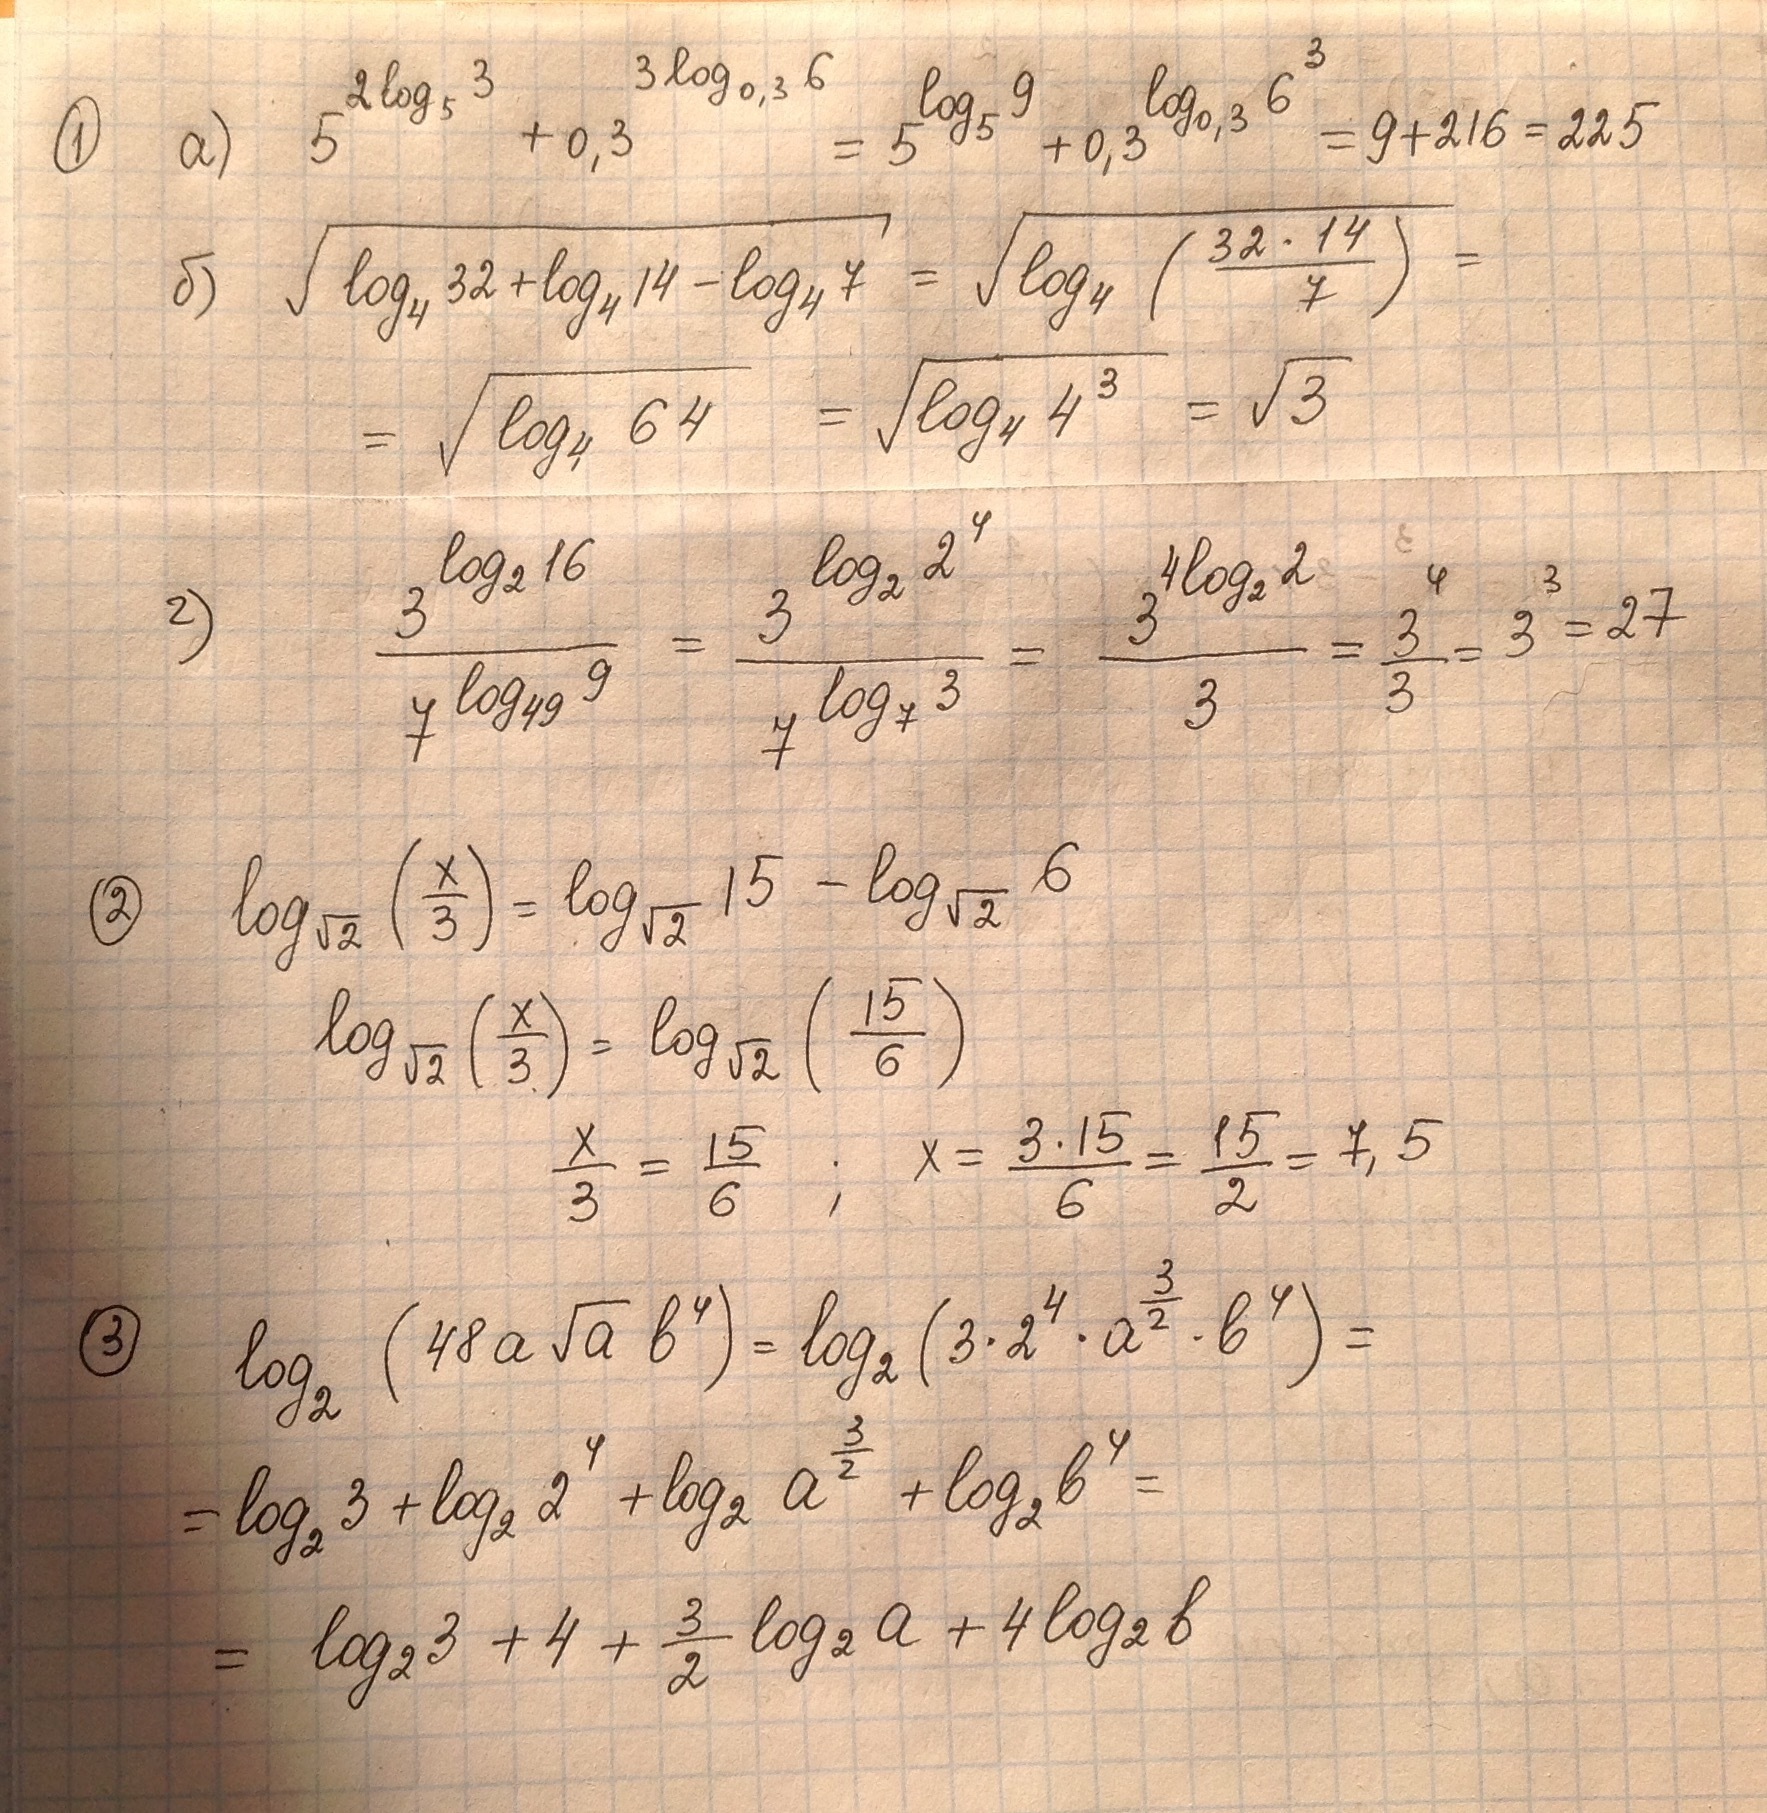 ① а) 5^(2log₅3) + 0,3^(3log₀,₃6) = 5^(log₅9) + 0,3^(log₀,₃6³) = 9+216 = 225
б) √(log₄32 + log₄14 − log₄7) = √(log₄(32·14/7)) =
= √(log₄64) = √(log₄4³) = √3
г) 3^(log₂16)/7^(log₄₉9) = 3^(log₂2⁴)/7^(log₇3) = 3^(4log₂2)/3 = 3⁴/3 = 3³ = 27
② log_√2(x/3) = log_√2 15 − log_√2 6
log_√2(x/3) = log_√2(15/6)
x/3 = 15/6 ; x = 3·15/6 = 15/2 = 7,5
③ log₂(48a√a b⁴) = log₂(3·2⁴·a^(3/2)·b⁴) =
= log₂3 + log₂2⁴ + log₂a^(3/2) + log₂b⁴ =
= log₂3 + 4 + 3/2 log₂a + 4log₂b